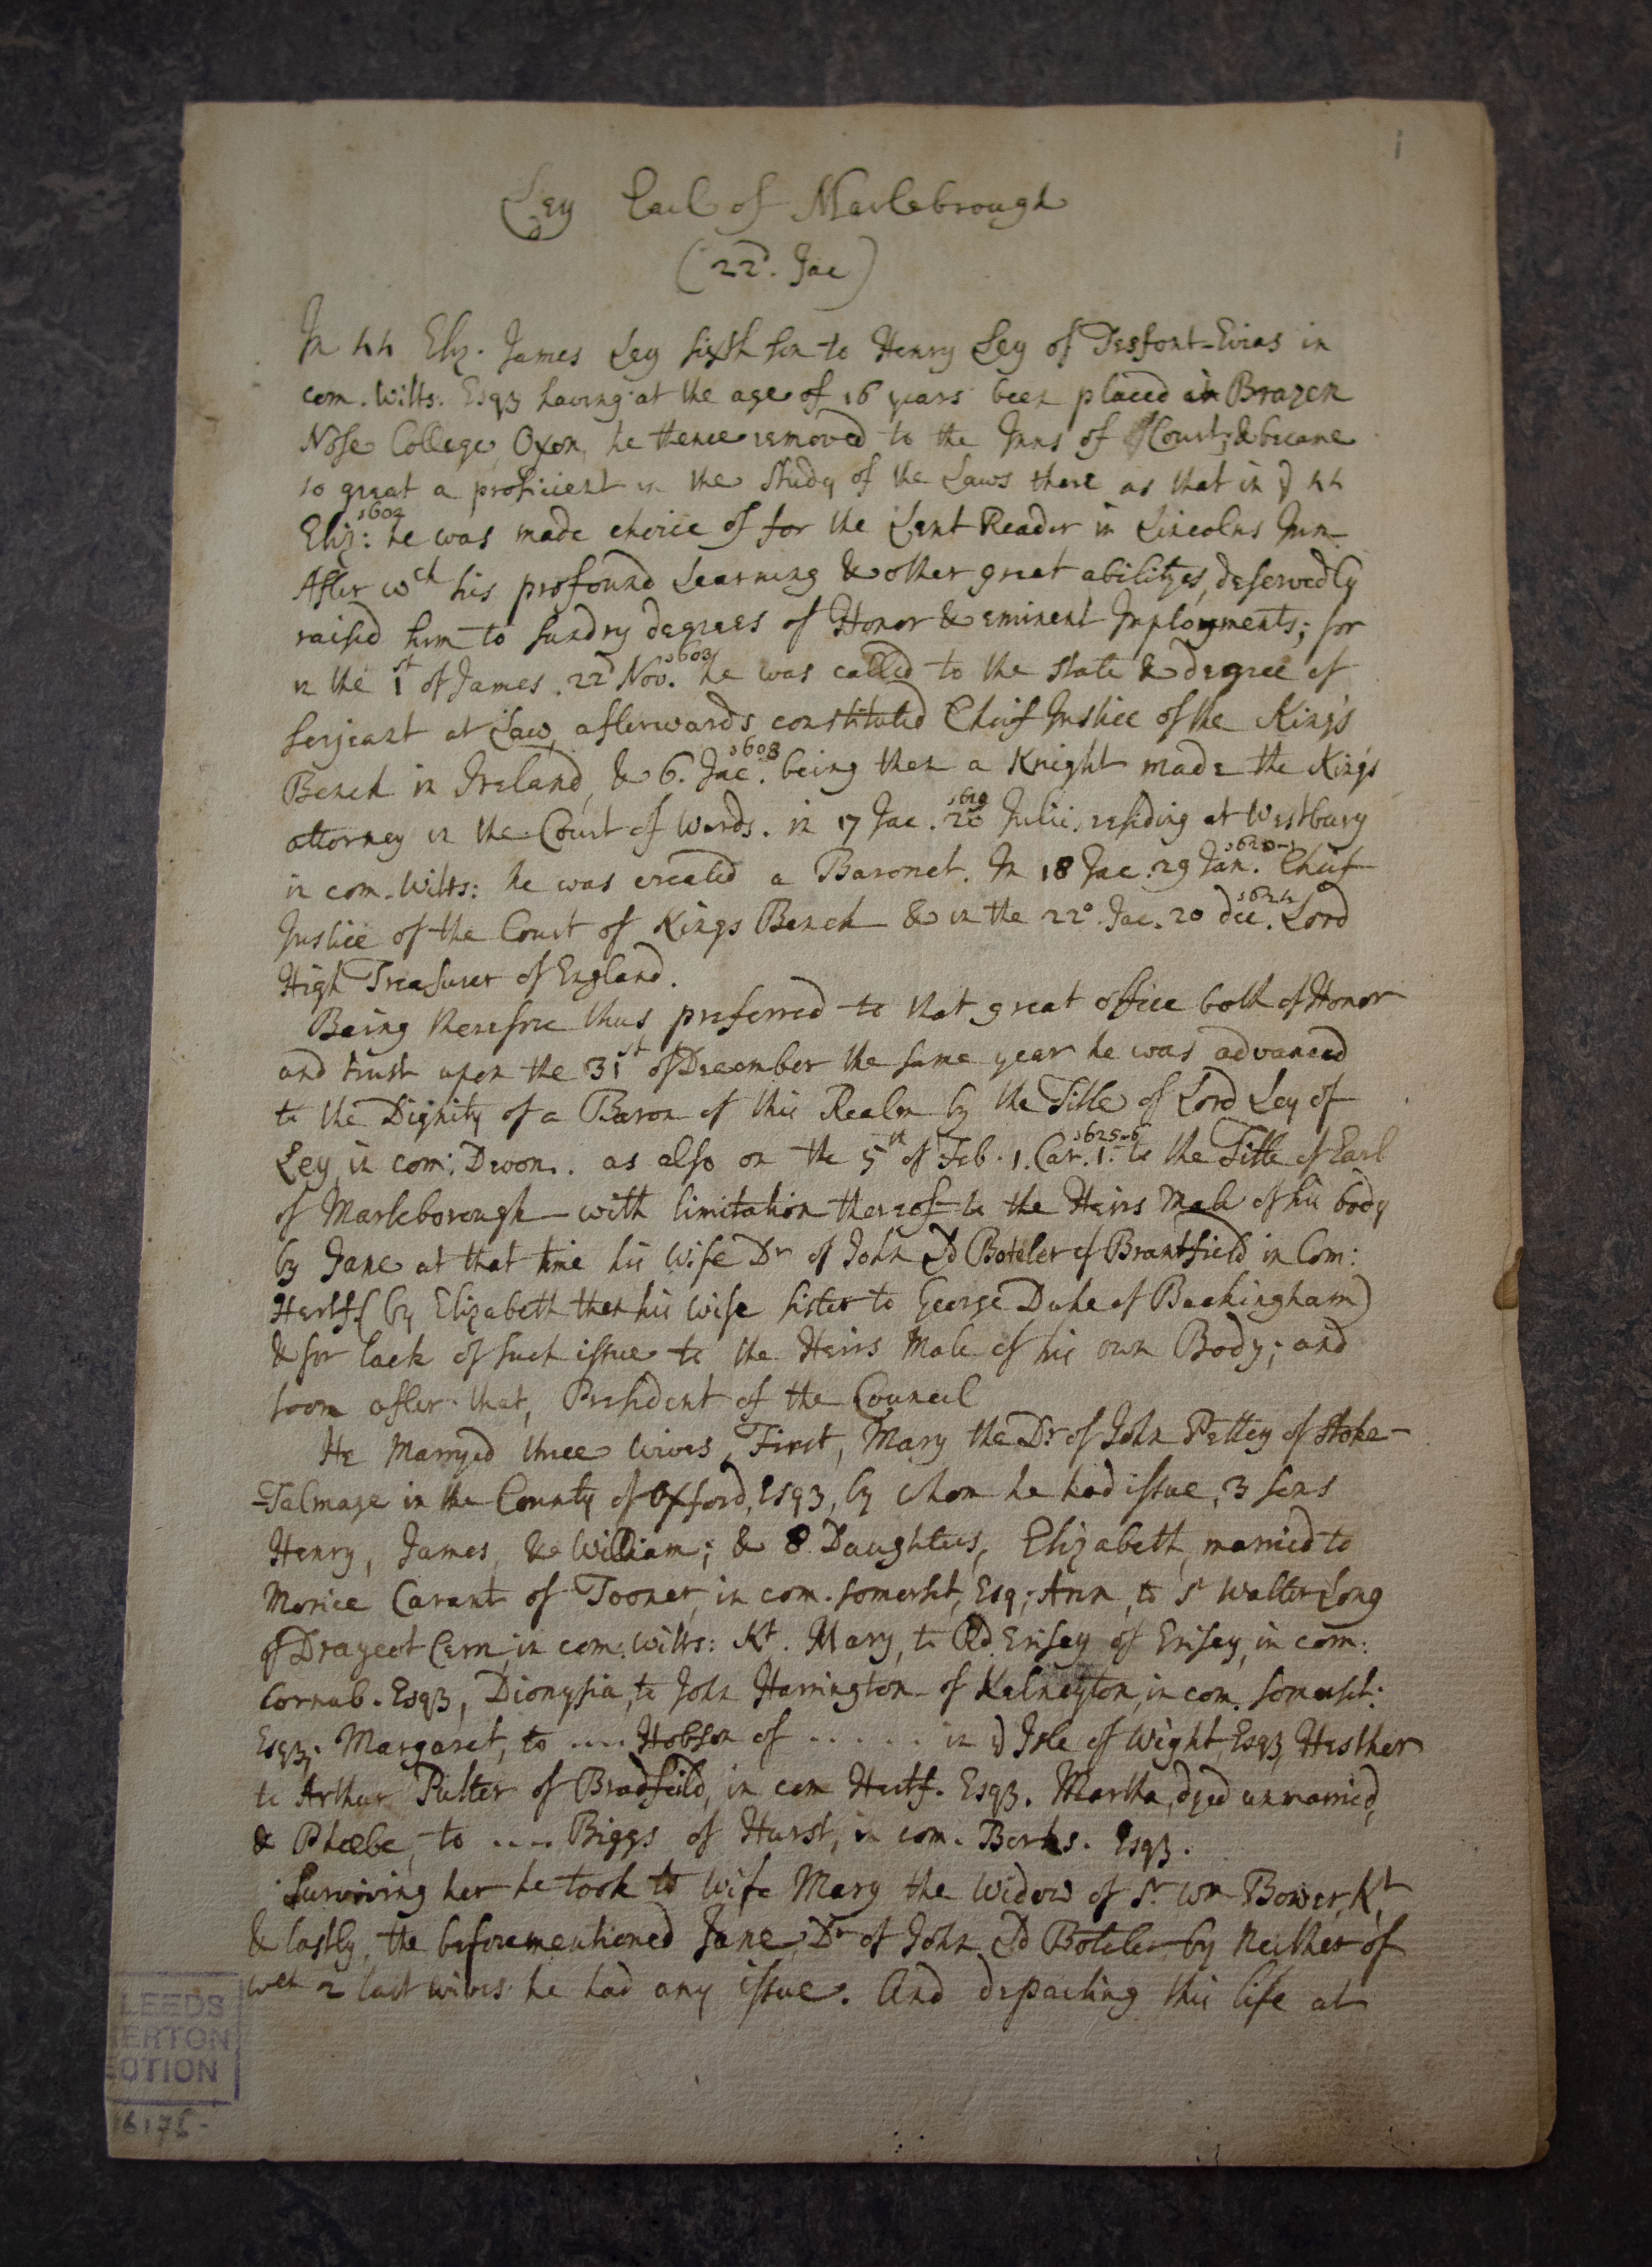 1
Ley Earl of Marlebrough
(22d. Jac)
In 44 Eliz. James Ley sixth son to Henry Ley of Tesfont-Evias in
com. Wilts. Esqȝ having at the age of 16 years been placed in Brazen
Nose College, Oxon, he thence removed to the Inns of Court, & became
so great a proficient in the study of the Laws there as that in ye 44
1602
Eliz: he was made choice of for the Lent Reader in Lincolns Inn.
After wch his profound Learning & other great abilityes, deservedly
raised him to sundry degrees of Honor & eminent Imployments; for
1603
in the 1st of James. 22d Nov. he was called to the state & degree of
serjeant at Law, afterwards constituted Cheif Justice of the King's
1608
Bench in Ireland, & 6. Jac. being then a Knight made the King's
1619
attorney in the Court of Wards. in 17 Jac. 20 Julii, residing at Westbury
1620-1
in com. Wilts: he was created a Baronet. In 18 Jac. 29 Jan. Cheif
1624
Justice of the Court of Kings Bench & in the 22o. Jac. 20 dec. Lord
High Treasurer of England.
Being therefore thus preferred to that great office both of Honor
and trust upon the 31st of December the same year he was advanced
to the Dignity of a Baron of this Realm by the Title of Lord Ley of
1625-6
Ley in com: Devon.. as also on the 5th of Feb. 1. Car. 1. to the Title of Earl
of Marleborough with limitation thereof to the Heirs Male of his body
by Jane at that time his wife Dr of John Ld Boteler of Brantfield in Com:
Hertf. (by Elizabeth then his wife sister to George Duke of Buckingham)
& for lack of such issue to the Heirs Male of his own Body; and
soon after that, President of the Council
He Marryed three wives, First, Mary the Dr of John Pettey of Stoke-
-Talmage in the County of Oxford, Esqȝ, by whom he had issue, 3 sons
Henry, James, & William; & 8 Daughters, Elizabeth, married to
Morice Carant of Tooner, in com. somerset, Esq; Ann, to Sr Walter Long
of Draycot Cern, in com: Wilts: Kt. Mary, to Rd. Erisey of Erisey, in com:
Cornub. Esqȝ, Dionysia, to John Harrington of Kelneyton, in com. somerset:
Esqȝ; Margaret, to .... Hobson of ...... in ye Isle of Wight, Esqȝ, Hesther
to Arthur Pulter of Bradfeild, in com Hertf. Esqȝ. Martha, dyed unmarried,
& Phœbe, to .... Biggs of Hurst, in com. Berks. Esqȝ.
Surviving her he took to wife Mary the Widow of Sr. Wm Bower, Kt,
& lastly, the beforementioned Jane, Dr of John Ld Boteler by neither of
wch 2 last wives he had any issue. And departing this life at
LEEDS
ERTON
OTION